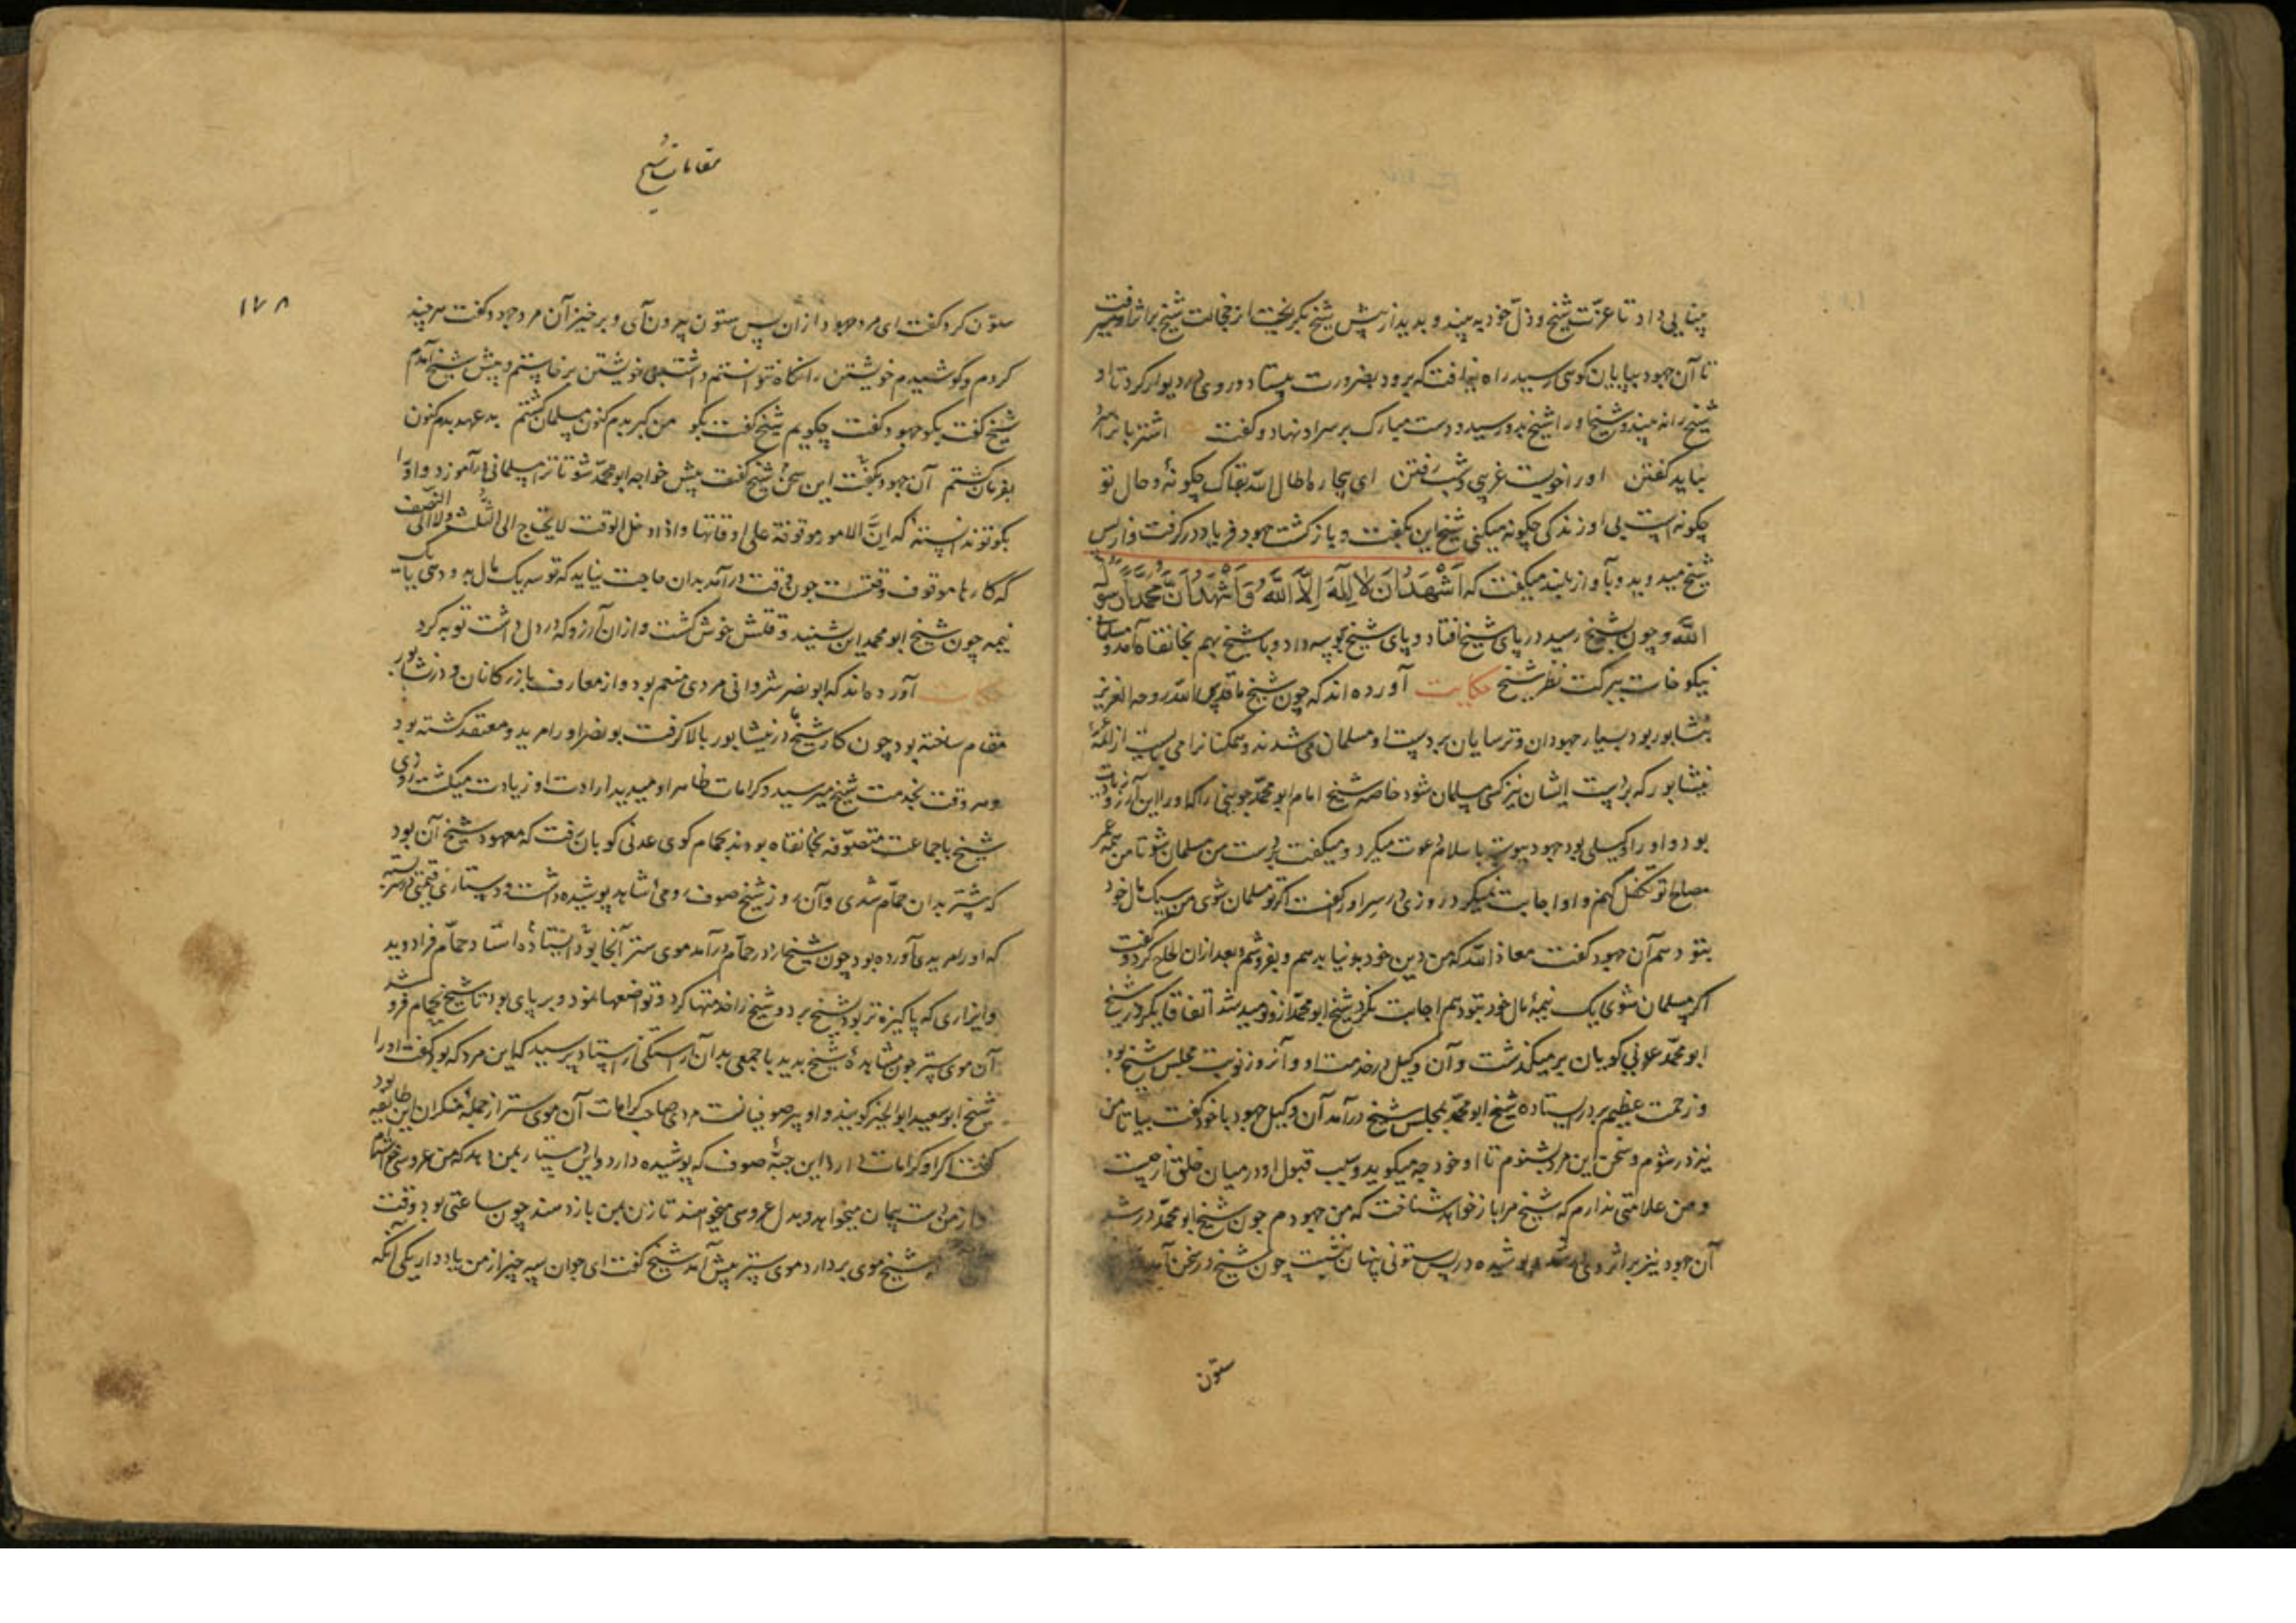 بینایی داد تا عزّت شیخ و ذلّ خود به بیند و بدید از پیش شیخ بگریخت از خجالت شیخ بر اثر او میرفت
تا آن جهود بپایان کوی رسید راه نیافت که برود بضرورت بیستاد و روی در دیوار کرد تا او
شیخ را نه بیند و شیخ او را شیخ بدو رسید و دست مبارک بر سر او نهاد و گفت اشتربان را سرد
نباید گفتن او را خویست غریبی و شب رفتن ای بیچاره اطال الله بقاک چگونهٔ و حال تو
چگونه است بی او زندگی چگونه میکنی شیخ این بگفت و باز گشت جهود فریاد در گرفت و از پس
شیخ میدوید و بآواز بلند میگفت که اَشْهَدُ اَنْ لا اِلهَ اِلَّا اللهُ وَ اَشْهَدُ اَنَّ مُحَمَّداً رَسُولُ
اللهِ و چون بشیخ رسید در پای شیخ افتاد و پای شیخ بوسه داد و با شیخ بهم بخانقاه آمد و مسلمانی
نیکو خاست ببرکت نظر شیخ حکایت آورده اند که چون شیخ ما قدس الله روحه العزیز
بنشابور بود بسیار جهودان و ترسایان بر دست او مسلمان می شدند و همگنانرا می بایست از ائمهٔ
نیشابور که بر دست ایشان نیز کسی مسلمان شود خاصه شیخ امام ابو محمّد جوینی را که او را این آرزو زیادت
بود و او را وکیلی بود جهود پیوسته باسلام دعوت میکرد و میگفت بر دست من مسلمان شو تا من همه عمر
مصالح تو تکفل کنم و او اجابت نمیکرد روزی در سر او را گفت اگر تو مسلمان شوی من سیک مال خود
بتو دهم آن جهود گفت معاذ الله که من دین خود بدنیا بدهم و بفروشم و بعد از ان الحاح کرد و گفت
اگر مسلمان شوی یک نیمهٔ مال خود بتو دهم اجابت نکرد شیخ ابو محمّد ازو نومید شد اتفاقا یکروز شیخ
ابو محمّد عدنی کوبان بر میگذشت و آن وکیل در خدمت او و آنروز نوبت مجلس شیخ بود
و زحمت عظیم بر در ایستاده شیخ ابو محمّد بمجلس شیخ درآمد آن وکیل جهود با خود گفت بیا تا من
نیز در شوم و سخن این مرد بشنوم تا او خود چه میگوید و سبب قبول او در میان خلق از چیست
و من علامتی ندارم که شیخ مرا باز خواهد شناخت که من جهودم چون شیخ ابو محمّد در شد
آن جهود نیز بر اثر وی در شد و پوشیده در پس ستونی پنهان بنشست چون شیخ در سخن آمد
ستون
مقامات شیخ
۱۷۸
ستون کرد و گفت ای مرد جهود از ان پس ستون بیرون آی و بر خیز آن مرد جهود گفت هر چند
کردم و کوشیدم خویشتن را نگاه نتوانستم داشت بی خویشتن بر خاستم و پیش شیخ آمدم
شیخ گفت بگو جهود گفت چگویم شیخ گفت بگو من گبر بدم کنون مسلمان گشتم بد عهد بدم کنون
بفرمان گشتم آن جهود بگفت این سخن شیخ گفت پیش خواجه ابو محمّد شو تا ترا مسلمانی در آموزد و او را
بگو تو ندانسته که اینّ الامور موقوفة علی اوقاتها و اذا دخل الوقت لا یحتاج الی الثلث و لا الی النصف
که کارها موقوف وقتست چون وقت در آمد بدان حاجت نیاید که تو سه یک مال بدو دهی یا یک
نیمه چون شیخ ابو محمد این بشنید وقتش خوش گشت و از ان آرزو که در دل داشت توبه کرد
حکایت آورده اند که ابو نصر شروانی مردی منعم بود و از معارف بازرگانان و در نشابور
مقام ساخته بود چون کار شیخ ما در نیشابور بالا گرفت بو نصر او را مرید و معتقد گشته بود
و هر وقت بخدمت شیخ میرسید و کرامات ظاهر او میدید ارادت او زیادت میگشت روزی
شیخ با جماعت متصوّفه بخانقاه بودند بحمام کوی عدنی کوبان رفت که معهود شیخ آن بود
که بیشتر بدان حمّام شدی و آن روز شیخ صوف رومی شاهد پوشیده داشت و دستاری قیمتی در سر بسته
که او را مریدی آورده بود چون شیخ ما را در حمّام در آمد موی ستر آنجا بود ایستاده استاد حمّام فرا دوید
و ایزاری که پاکیزه تر بود بشیخ برد و شیخ را خدمتها کرد و تواضعها نمود و بر پای بود تا شیخ بحمام فرو شد
آن موی ستر چون مشاهدهٔ شیخ بدید با جمعی بدان آراستگی از استاد پرسید که این مرد که بود گفت او را
شیخ ابو سعید ابو الخیر گویند و او پیر صوفیانست مردی صاحب کرامات آن موی ستر از جملهٔ منکران این طایفه بود
گفت اگر او کرامات دارد این جبّهٔ صوف که پوشیده دارد و این دستار بمن دهد که من عروسی خواهم
از من دست پیمان میخواهد و بدل عروسی میخواهند تا زن بمن باز دهند چون ساعتی بود وقت
شیخ موی بردارد موی ستر پیش آمد شیخ گفت ای جوان سه چیز از من یاد دار یکی آنکه